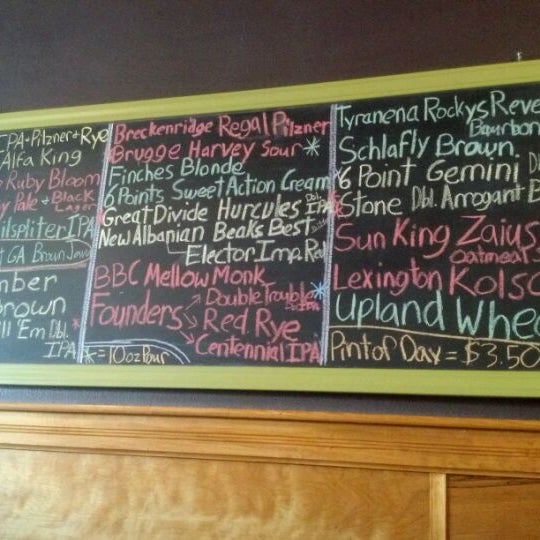 IPA • Pilzner + Rye
Alfa King
Ruby Bloom
Pale + Black
Lager
ilsplitter IPA
GA Brown
mber
rown
ill 'Em Dbl.
IPA
Breckenridge Regal Pilzner
Brugge Harvey Sour *
Finches Blonde
6 Points Sweet Action Cream
Great Divide Hurcules Dbl. IPA
New Albanian Beaks Best
Elector Imp. Red
BBC Mellow Monk
Founders → Double Trouble *
→ Red Rye
→ Centennial IPA
* = 10oz Pour
Tyranena Rockys Reve
Bourbon
Schlafly Brown
6 Point Gemini D
Stone Dbl. Arrogant B
Sun King Zaius
Oatmeal S
Lexington Kolsc
Upland Whe
Pint of Day = $3.50